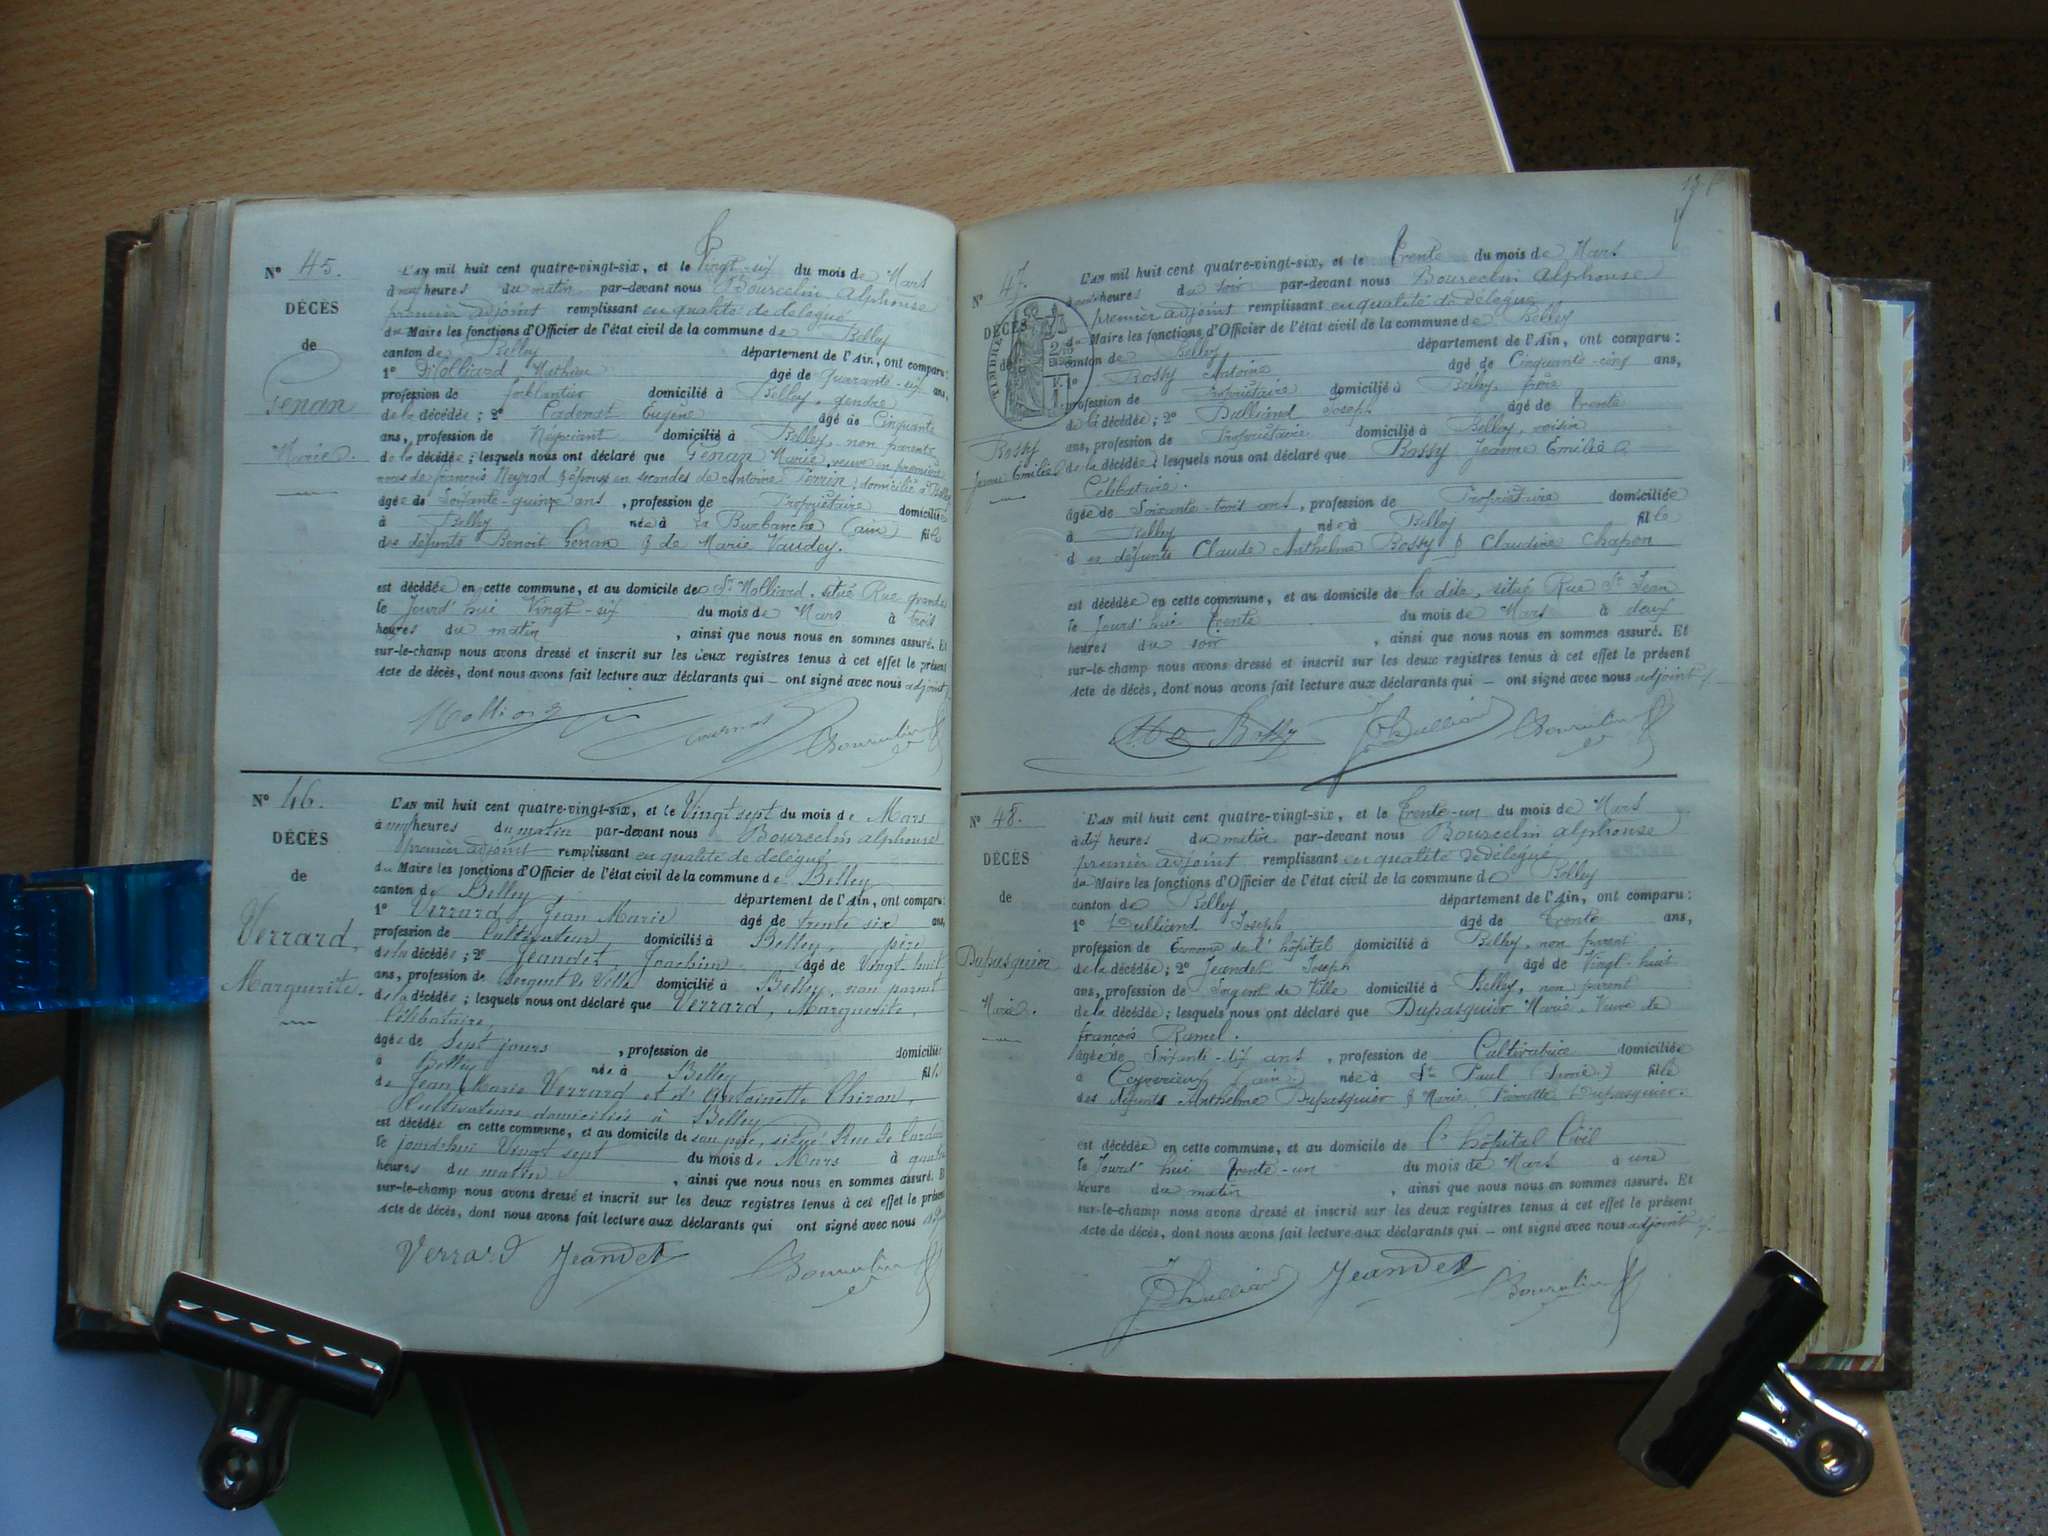 N° 45.
DÉCÈS
de
Genan
Marie.
L'AN mil huit cent quatre-vingt-six, et le Vingt-six du mois de Mars
à neuf heures du matin par-devant nous Bourcelin Alphonse
premier adjoint remplissant en qualité de délégué
du Maire les fonctions d'Officier de l'état civil de la commune de Belley
canton de Belley département de l'Ain, ont comparu :
1° Molliard Mathieu âgé de quarante-six ans,
profession de ferblantier domicilié à Belley, gendre
de la décédée ; 2° Eugène âgé de Cinquante
ans, profession de Négociant domicilié à Belley, non parent
de la décédée ; lesquels nous ont déclaré que Genan Marie, veuve en premières
noces de françois Neyrod & épouse en secondes de Antoine Perrin, domicilié à Belley
âgée de Soixante-quinze ans , profession de Propriétaire domiciliée
à Belley née à La Burbanche (ain) fille
des défunts Benoit Genan & de Marie Vaudey.
est décédée en cette commune, et au domicile de Sr Molliard, situé Rue grande
le Jourd'hui Vingt-six du mois de Mars à trois
heures du matin , ainsi que nous nous en sommes assuré. Et
sur-le-champ nous avons dressé et inscrit sur les deux registres tenus à cet effet le présent
Acte de décès, dont nous avons fait lecture aux déclarants qui — ont signé avec nous adjoint
Molliard Bourcelin
N° 46.
DÉCÈS
de
Verrard,
Marguerite.
L'AN mil huit cent quatre-vingt-six, et le Vingt sept du mois de Mars
à neuf heures du matin par-devant nous Bourcelin alphonse
premier adjoint remplissant en qualité de délégué
du Maire les fonctions d'Officier de l'état civil de la commune de Belley
canton de Belley département de l'Ain, ont comparu :
1° Verrard, Jean Marie âgé de trente six ans,
profession de Cultivateur domicilié à Belley, père
de la décédée ; 2° Jeandet, Joachim âgé de Vingt-huit
ans, profession de Sergent de Ville domicilié à Belley, non parent
de la décédée ; lesquels nous ont déclaré que Verrard, Marguerite,
Célibataire,
âgée de Sept jours , profession de domiciliée
à Belley née à Belley fille
de Jean Marie Verrard et d'Antoinette Chiron,
Cultivateurs domiciliés à Belley
est décédée en cette commune, et au domicile de son père, situé Rue
le jourd'hui Vingt sept du mois de Mars à quatre
heures du matin , ainsi que nous nous en sommes assuré. Et
sur-le-champ nous avons dressé et inscrit sur les deux registres tenus à cet effet le présent
Acte de décès, dont nous avons fait lecture aux déclarants qui ont signé avec nous
Verrard Jeandet Bourcelin
N° 47.
DÉCÈS
de
TIMBRE
Bossy
Jeanne Emilie
L'AN mil huit cent quatre-vingt-six, et le Trente du mois de Mars
heures du soir par-devant nous Bourcelin Alphonse
premier adjoint remplissant en qualité de délégué
du Maire les fonctions d'Officier de l'état civil de la commune de Belley
canton de Belley département de l'Ain, ont comparu :
1° Bossy Antoine âgé de Cinquante-cinq ans,
profession de Propriétaire domicilié à Belley, frère
de la décédée ; 2° Dulliand Joseph âgé de trente
ans, profession de Propriétaire domicilié à Belley, voisin
de la décédée ; lesquels nous ont déclaré que Bossy Jeanne Emilie
Célibataire.
âgée de Soixante-trois ans , profession de Propriétaire domiciliée
à Belley née à Belley fille
des défunts Claude Anthelme Bossy & Claudine Chapon
est décédée en cette commune, et au domicile de la dite, situé Rue St Jean
le Jourd'hui Trente du mois de Mars à deux
heures du soir , ainsi que nous nous en sommes assuré. Et
sur-le-champ nous avons dressé et inscrit sur les deux registres tenus à cet effet le présent
Acte de décès, dont nous avons fait lecture aux déclarants qui — ont signé avec nous adjoint
Bossy JDulliand Bourcelin
N° 48.
DÉCÈS
de
Dupasquier
Marie.
L'AN mil huit cent quatre-vingt-six, et le Trente-un du mois de Mars
à dix heures du matin par-devant nous Bourcelin alphonse
premier adjoint remplissant en qualité de délégué
du Maire les fonctions d'Officier de l'état civil de la commune de Belley
canton de Belley département de l'Ain, ont comparu :
1° Dulliand Joseph âgé de Trente ans,
profession de Econome de l'hôpital domicilié à Belley, non parent
de la décédée ; 2° Jeandet Joseph âgé de Vingt-huit
ans, profession de Sergent de Ville domicilié à Belley, non parent
de la décédée ; lesquels nous ont déclaré que Dupasquier Marie, Veuve de
françois Ramel.
âgée de Soixante-dix ans , profession de Cultivatrice domiciliée
à Ceyzerieux (ain) née à St Paul (Savoie) fille
des défunts Anthelme Dupasquier & Marie Pierrette Dupasquier.
est décédée en cette commune, et au domicile de l'hôpital Civil
le Jourd'hui Trente-un du mois de Mars à une
heure du matin , ainsi que nous nous en sommes assuré. Et
sur-le-champ nous avons dressé et inscrit sur les deux registres tenus à cet effet le présent
Acte de décès, dont nous avons fait lecture aux déclarants qui — ont signé avec nous adjoint
JDulliand Jeandet Bourcelin